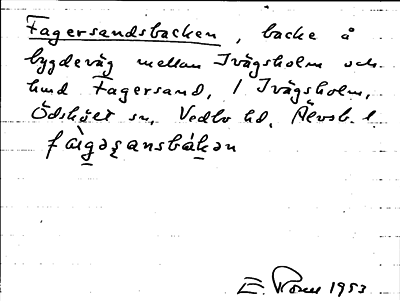 Fagersandsbacken, backe å
bygdeväg mellan Ivägsholm och
hmd Fagersand, / Ivägsholm,
Ödskölt sn, Vedbo hd, Älvsb. l.
E. 1953